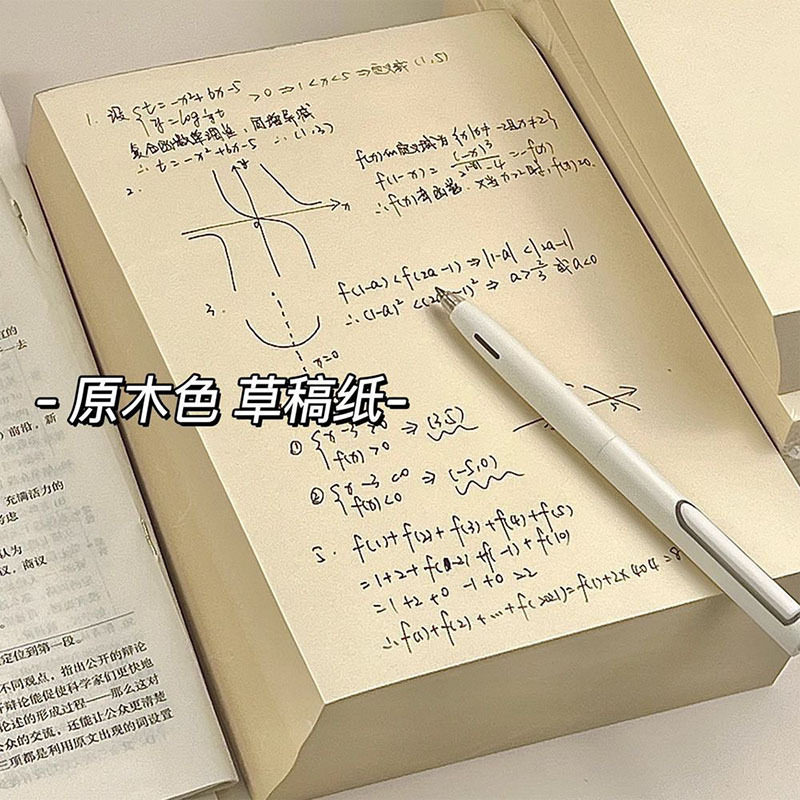 1. 设{t=-x²+6x-5 >0 ⇒1<x<5 ⇒定义域(1,5)
y=log
复合函数单调性,同增异减
∴ t=-x²+6x-5 ∴ (1,3)
2.
y
x
0
f(x)的定义域为{x|x≠-2且x≠2}
f(-x)=(-x)³/ -4 =-f(x)
∴f(x)奇函数. 又当x>2时,f(x)>0.
3.
f(1-a)<f(2a-1)⇒|1-a|<|2a-1|
∴(1-a)²<(2a-1)² ⇒ a>2/3 或a<0
x=0
- 原木色 草稿纸-
① {x-3>0 ⇒ (3,5)
f(x)>0
② {x-3<0 ⇒ (-5,0)
f(x)<0
5. f(1)+f(2)+f(3)+f(4)+f(5)
=1+2+f( -2)+f(-1)+f(0)
=1+2+0-1+0=2
∴f(1)+f(2)+…+f(2021)=f(1)+2×404=8
一去
)前沿,新
充满活力的
考虑
认为
议,商议
定位到第一段。
不同观点,指出公开的辩论
辩论能促使科学家们更快地
论述的形成过程——那么这对
公众的交流,还能让公众更清楚
三项都是利用原文出现的词设置